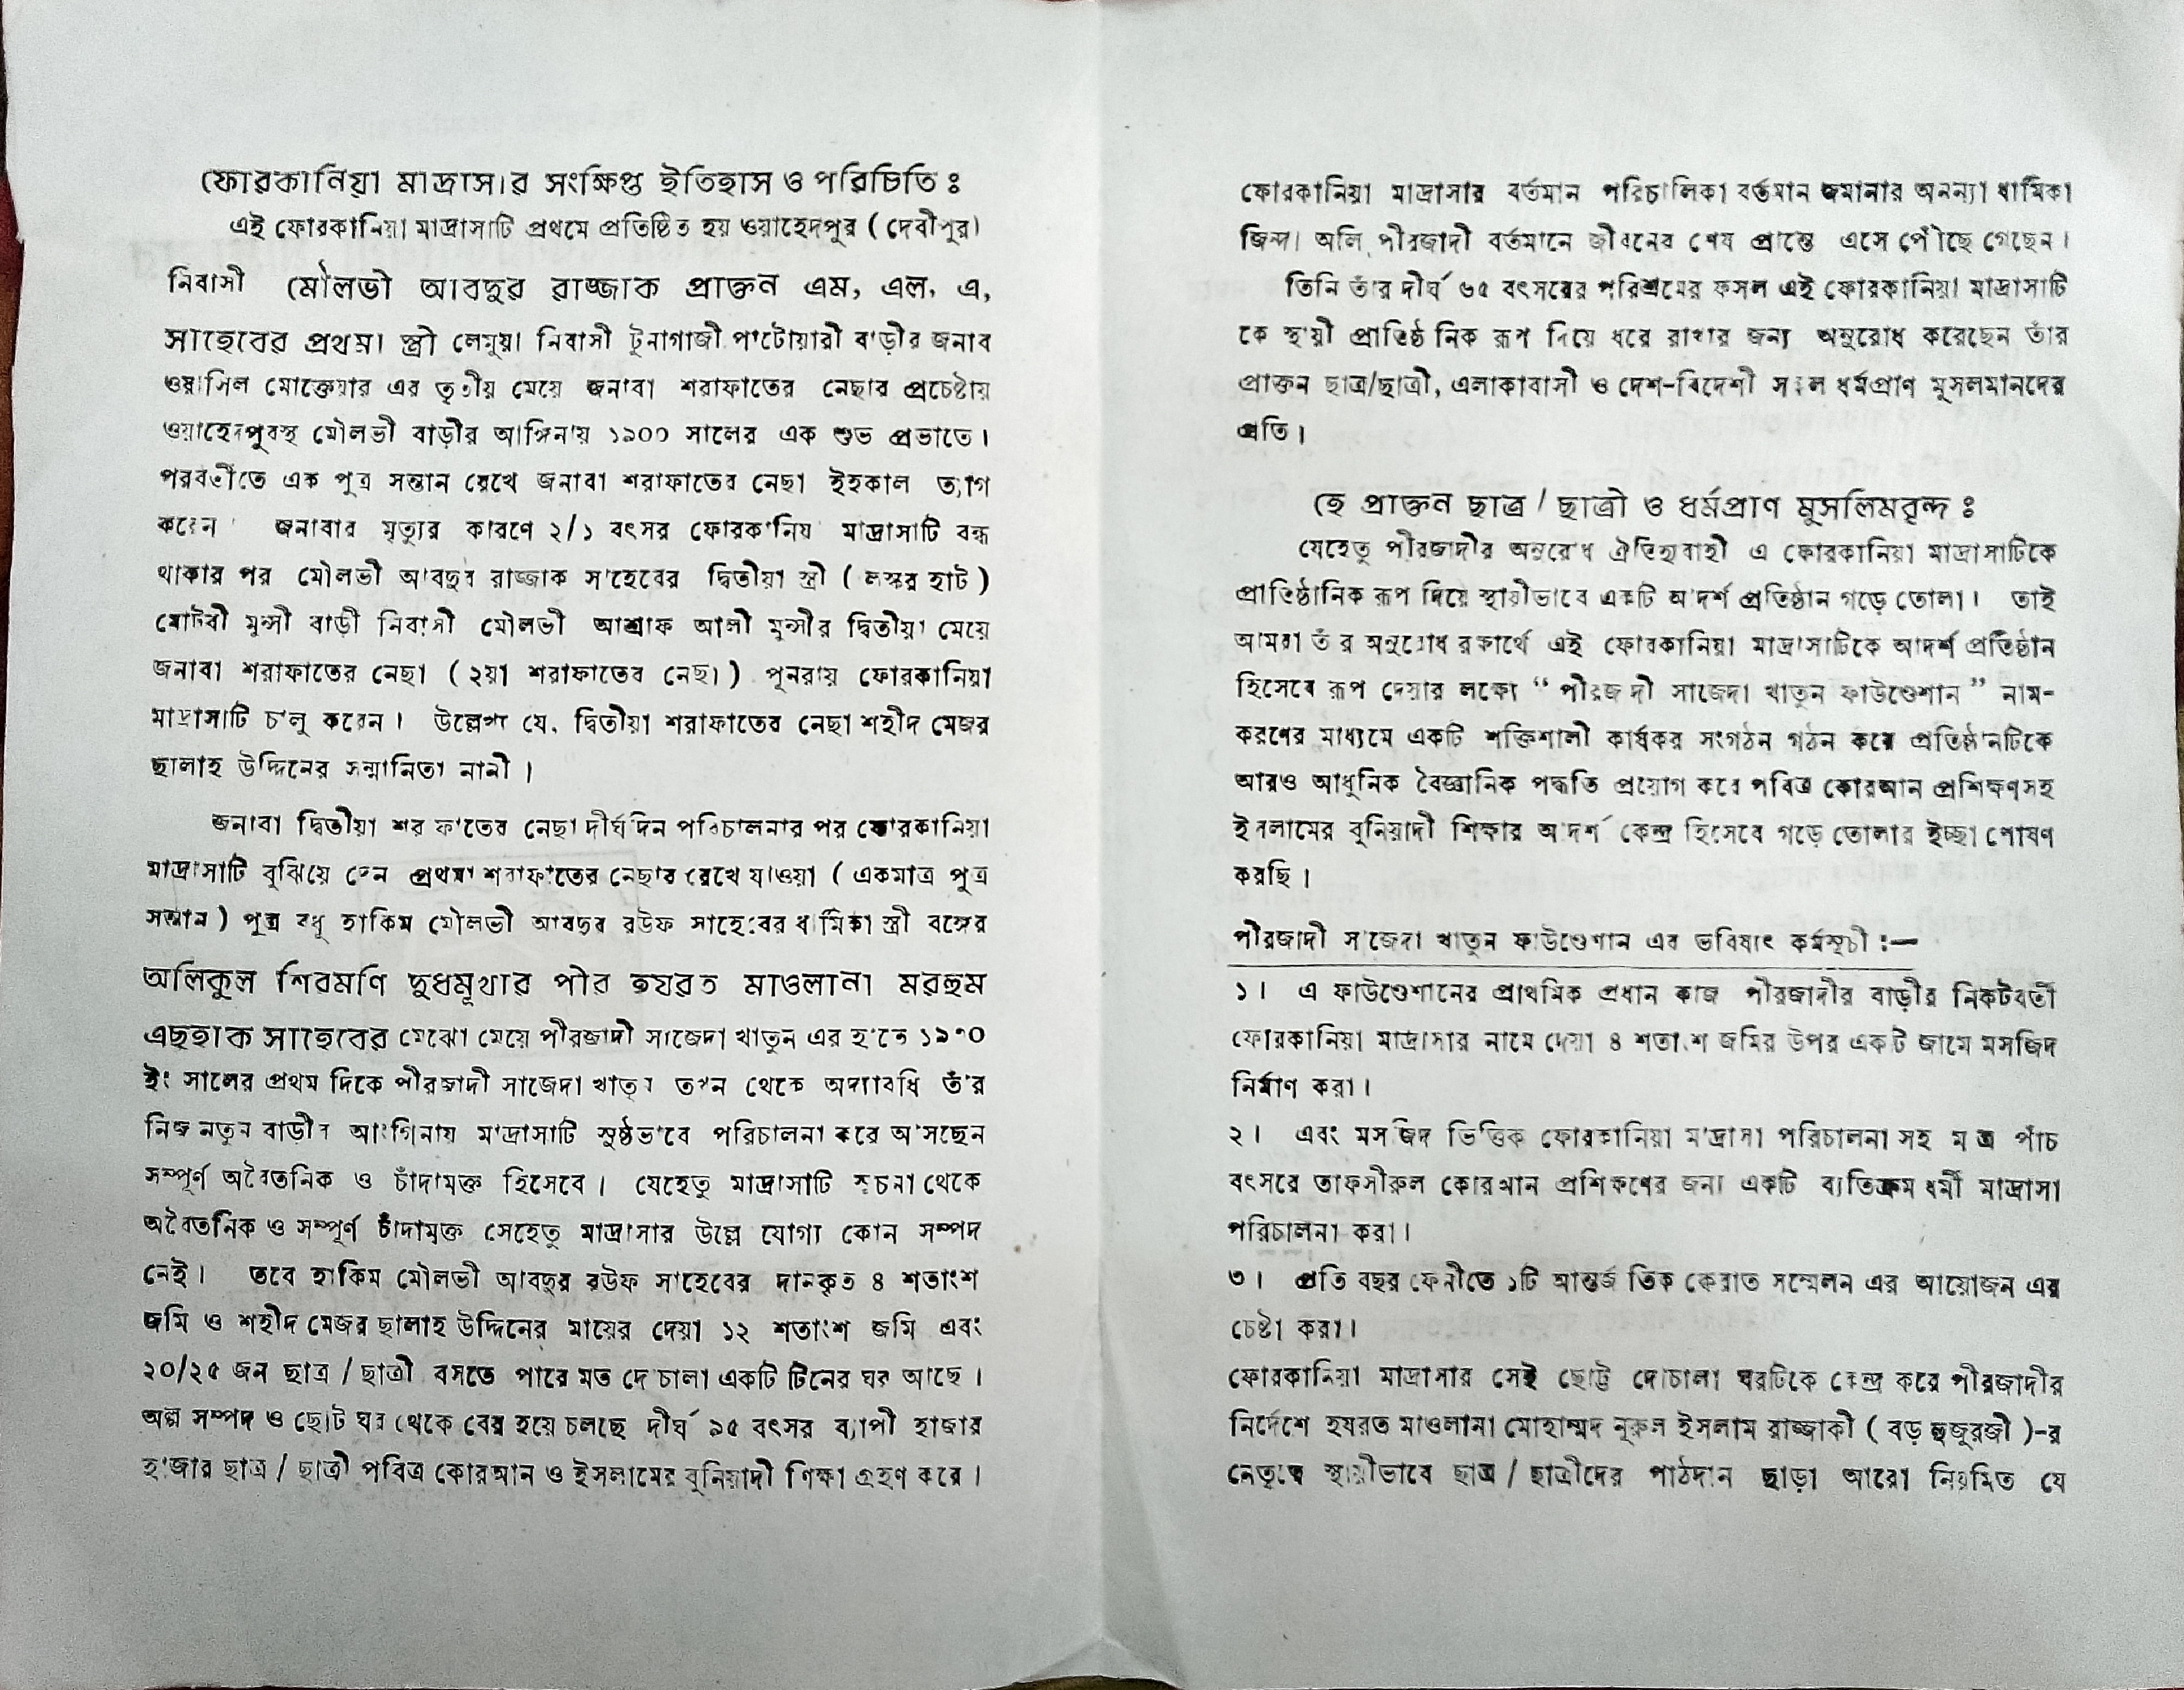 ফোরকানিয়া মাদ্রাসার সংক্ষিপ্ত ইতিহাস ও পরিচিতি ঃ
এই ফোরকানিয়া মাদ্রাসাটি প্রথমে প্রতিষ্ঠিত হয় ওয়াহেদপুর ( দেবীপুর)
নিবাসী মৌলভী আবদুর রাজ্জাক প্রাক্তন এম, এল, এ,
সাহেবের প্রথমা স্ত্রী লেমুয়া নিবাসী টুনাগাজী পাটোয়ারী বাড়ীর জনাব
ওয়াসিল মোক্তেয়ার এর তৃতীয় মেয়ে জনাবা শরাফাতের নেছার প্রচেষ্টায়
ওয়াহেদপুরস্থ মৌলভী বাড়ীর আঙ্গিনায় ১৯০০ সালের এক শুভ প্রভাতে।
পরবর্তীতে এক পুত্র সন্তান রেখে জনাবা শরাফাতের নেছা ইহকাল ত্যাগ
করেন । জনাবার মৃত্যুর কারণে ২/১ বৎসর ফোরকানিয়া মাদ্রাসাটি বন্ধ
থাকার পর মৌলভী আবদুর রাজ্জাক সাহেবের দ্বিতীয়া স্ত্রী ( লস্কর হাট )
মোটবী মুন্সী বাড়ী নিবাসী মৌলভী আশ্রাফ আলী মুন্সীর দ্বিতীয়া মেয়ে
জনাবা শরাফাতের নেছা ( ২য়া শরাফাতের নেছা ) পূনরায় ফোরকানিয়া
মাদ্রাসাটি চালু করেন । উল্লেখ্য যে, দ্বিতীয়া শরাফাতের নেছা শহীদ মেজর
ছালাহ উদ্দিনের সম্মানিতা নানী ।
জনাবা দ্বিতীয়া শরাফাতের নেছা দীর্ঘদিন পরিচালনার পর ফোরকানিয়া
মাদ্রাসাটি বুঝিয়ে দেন প্রথমা শরাফাতের নেছার রেখে যাওয়া ( একমাত্র পুত্র
সন্তান ) পুত্র বধূ হাকিম মৌলভী আবদুর রউফ সাহেবের ধার্মিকা স্ত্রী বঙ্গের
অলিকুল শিরমণি দুধমূখার পীর হযরত মাওলানা মরহুম
এছহাক সাহেবের মেঝো মেয়ে পীরজাদী সাজেদা খাতুন এর হাতে ১৯৩০
ইং সালের প্রথম দিকে পীরজাদী সাজেদা খাতুন তখন থেকে অদ্যাবধি তাঁর
নিজ নতুন বাড়ীর আংগিনায় মাদ্রাসাটি সুষ্ঠভাবে পরিচালনা করে আসছেন
সম্পূর্ণ অবৈতনিক ও চাঁদামুক্ত হিসেবে । যেহেতু মাদ্রাসাটি সূচনা থেকে
অবৈতনিক ও সম্পূর্ণ চাঁদামুক্ত সেহেতু মাদ্রাসার উল্লে যোগ্য কোন সম্পদ
নেই। তবে হাকিম মৌলভী আবদুর রউফ সাহেবের দানকৃত ৪ শতাংশ
জমি ও শহীদ মেজর ছালাহ উদ্দিনের মায়ের দেয়া ১২ শতাংশ জমি এবং
২০/২৫ জন ছাত্র / ছাত্রী বসতে পারে মত দোচালা একটি টিনের ঘর আছে ।
অল্প সম্পদ ও ছোট ঘর থেকে বের হয়ে চলছে দীর্ঘ ৯৫ বৎসর ব্যাপী হাজার
হাজার ছাত্র / ছাত্রী পবিত্র কোরআন ও ইসলামের বুনিয়াদী শিক্ষা গ্রহণ করে ।
ফোরকানিয়া মাদ্রাসার বর্তমান পরিচালিকা বর্তমান জমানার অনন্যা ধার্মিকা
জিন্দা অলি পীরজাদী বর্তমানে জীবনের শেষ প্রান্তে এসে পৌঁছে গেছেন ।
তিনি তাঁর দীর্ঘ ৬৫ বৎসরের পরিশ্রমের ফসল এই ফোরকানিয়া মাদ্রাসাটি
কে স্থায়ী প্রাতিষ্ঠানিক রূপ দিয়ে ধরে রাখার জন্য অনুরোধ করেছেন তাঁর
প্রাক্তন ছাত্র/ছাত্রী, এলাকাবাসী ও দেশ-বিদেশী সকল ধর্মপ্রাণ মুসলমানদের
প্রতি ।
হে প্রাক্তন ছাত্র / ছাত্রী ও ধর্মপ্রাণ মুসলিমবৃন্দ ঃ
যেহেতু পীরজাদীর অনুরোধ ঐতিহ্যবাহী এ ফোরকানিয়া মাদ্রাসাটিকে
প্রাতিষ্ঠানিক রূপ দিয়ে স্থায়ীভাবে একটি আদর্শ প্রতিষ্ঠান গড়ে তোলা । তাই
আমরা তাঁর অনুরোধ রক্ষার্থে এই ফোরকানিয়া মাদ্রাসাটিকে আদর্শ প্রতিষ্ঠান
হিসেবে রূপ দেয়ার লক্ষ্যে “ পীরজাদী সাজেদা খাতুন ফাউণ্ডেশান ” নাম-
করণের মাধ্যমে একটি শক্তিশালী কার্যকর সংগঠন গঠন করে প্রতিষ্ঠানটিকে
আরও আধুনিক বৈজ্ঞানিক পদ্ধতি প্রয়োগ করে পবিত্র কোরআন প্রশিক্ষণসহ
ইসলামের বুনিয়াদী শিক্ষার আদর্শ কেন্দ্র হিসেবে গড়ে তোলার ইচ্ছা পোষণ
করছি ।
পীরজাদী সাজেদা খাতুন ফাউণ্ডেশান এর ভবিষ্যৎ কর্মসূচী :—
১ । এ ফাউণ্ডেশানের প্রাথমিক প্রধান কাজ পীরজাদীর বাড়ীর নিকটবর্তী
ফোরকানিয়া মাদ্রাসার নামে দেয়া ৪ শতাংশ জমির উপর একটি জামে মসজিদ
নির্মাণ করা ।
২ । এবং মসজিদ ভিত্তিক ফোরকানিয়া মাদ্রাসা পরিচালনা সহ মাত্র পাঁচ
বৎসরে তাফসীরুল কোরআন প্রশিক্ষণের জন্য একটি ব্যতিক্রম ধর্মী মাদ্রাসা
পরিচালনা করা ।
৩ । প্রতি বছর ফেনীতে ১টি আন্তর্জাতিক কেরাত সম্মেলন এর আয়োজন এর
চেষ্টা করা ।
ফোরকানিয়া মাদ্রাসার সেই ছোট্ট দোচালা ঘরটিকে কেন্দ্র করে পীরজাদীর
নির্দেশে হযরত মাওলানা মোহাম্মদ নূরুল ইসলাম রাজ্জাকী ( বড় হুজুরজী )-র
নেতৃত্বে স্থায়ীভাবে ছাত্র / ছাত্রীদের পাঠদান ছাড়া আরো নিয়মিত যে